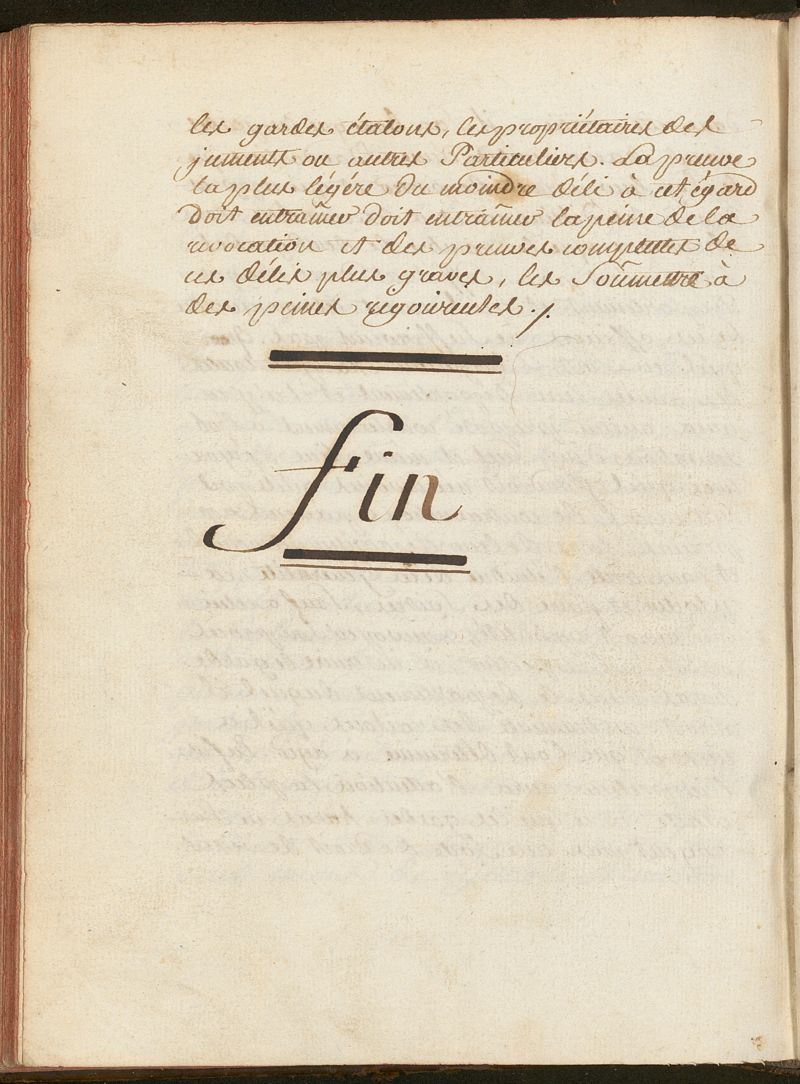 les gardes étalons, les propriétaires des
juments ou autres Particuliers. La preuve
la plus légére du moindre déli à cet égard
doit entraîner doit entraîner la peine de la
revocation et des preuves complettes de
ces délis plus graves, les Soûmettre à
des peines rigoureuses./.
fin